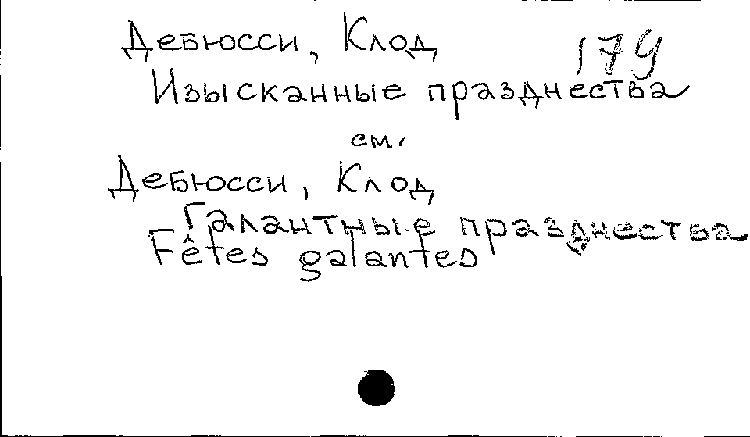 Дебюсси, Клод 179
Изысканные празднества
см.
Дебюсси, Клод
Галантные празднества
Fêtes galantes